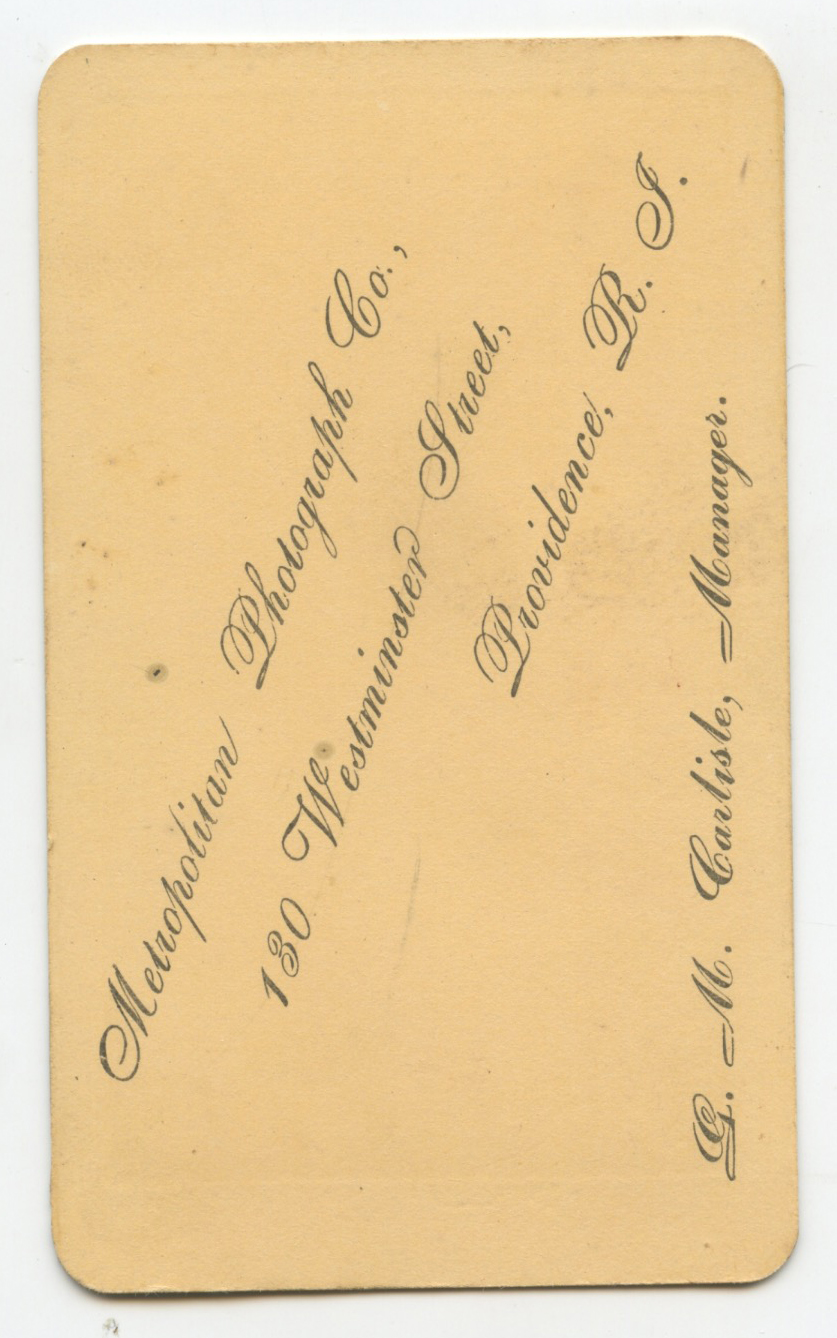 Metropolitan Photograph Co.,
130 Westminster Street,
Providence, R. I.
G. M. Carlisle, Manager.